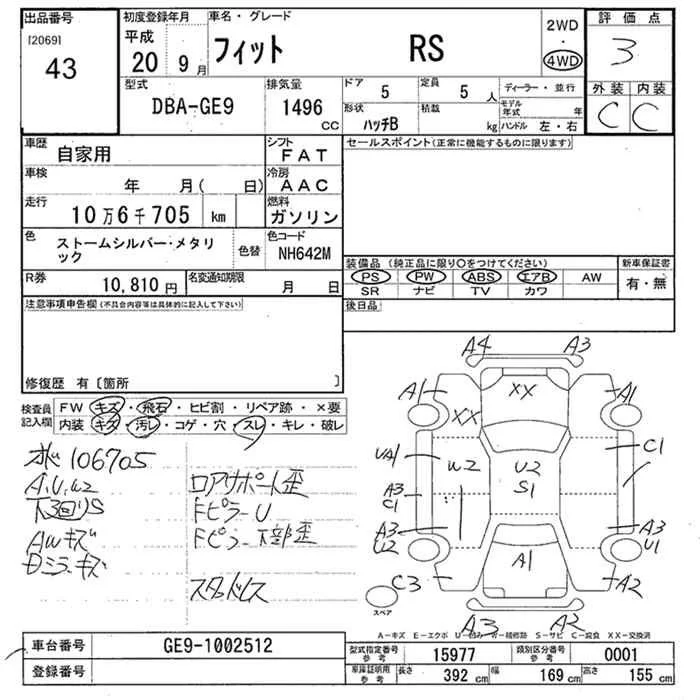 出品番号
[2069]
43
初度登録年月
平成
20 9月
車名・グレード
フィット RS
2WD
・
4WD
評価点
3
型式
DBA-GE9
排気量
1496
CC
ドア
5
定員
5 人
ディーラー・並行
形状
ハッチB
積載
kg
モデル
年式 年
ハンドル 左・右
外装 内装
C C
車歴
自家用
シフト
FAT
車検
年 月( 日)
冷房
AAC
走行
10万6千705 km
燃料
ガソリン
色
ストームシルバー・メタリ
ック
色替
色コード
NH642M
R券
10,810 円
名変通知期限
月 日
セールスポイント(正常に機能するものに限ります)
装備品 (純正品に限り○をつけてください)
PS PW ABS エアB AW
SR ナビ TV カワ
新車保証書
有・無
後日品
注意事項申告欄(不具合内容等は具体的に記入して下さい)
修復歴 有〔箇所 〕
検査員
記入欄
FW キズ・飛石・ヒビ割・リペア跡・×要
内装 キズ・汚レ・コゲ・穴・スレ・キレ・破レ
106705
A.U.W2
下回りS
AWキズ
Dミラーキズ
ロアサポート歪
FピラーU
Fピラー下部歪
スタッドレス
A4 A3
A1 XX A1
XX
UA1 W2 U2 C1
S1
A3
C1
A3 A3
U2 U1
A1
C3 A2
スペア
A3 A2
A-キズ E-エクボ U-凹み W-補修跡 S-サビ C-腐食 XX-交換済
車台番号 GE9-1002512
登録番号
型式指定番号
参考
15977
類別区分番号
参考
0001
車庫証明用
参考
長さ 392 cm 幅 169 cm 高さ 155 cm